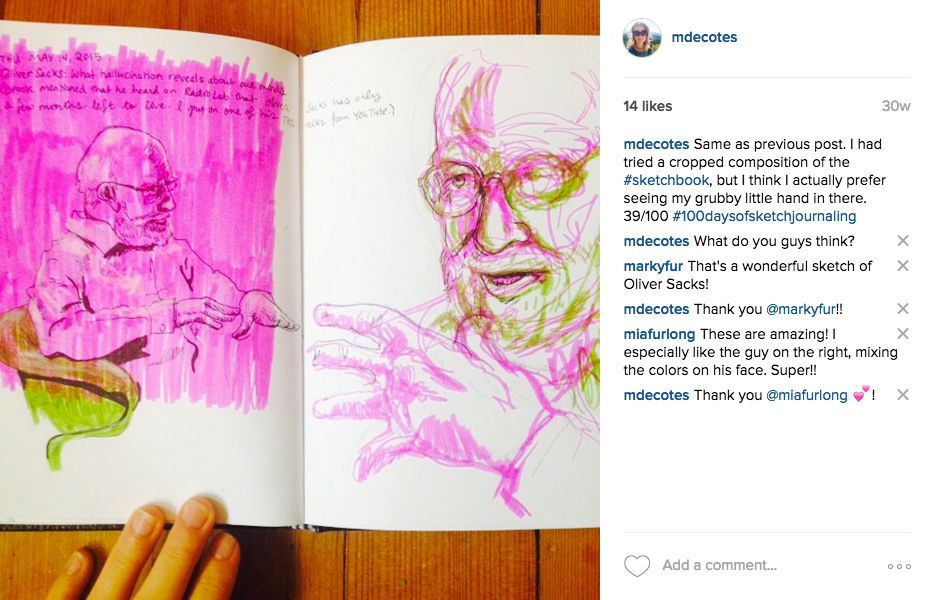 THU MAY 14, 2015
Oliver Sacks: What hallucination reveals about our minds
mentioned that he heard on RadioLab that Oliver
Sacks has only
a few months left to live. I put on one of his TED
talks from YouTube.)
mdecotes
14 likes
30w
mdecotes Same as previous post. I had
tried a cropped composition of the
#sketchbook, but I think I actually prefer
seeing my grubby little hand in there.
39/100 #100daysofsketchjournaling
mdecotes What do you guys think?
markyfur That's a wonderful sketch of
Oliver Sacks!
mdecotes Thank you @markyfur!!
miafurlong These are amazing! I
especially like the guy on the right, mixing
the colors on his face. Super!!
mdecotes Thank you @miafurlong 💕!
Add a comment...